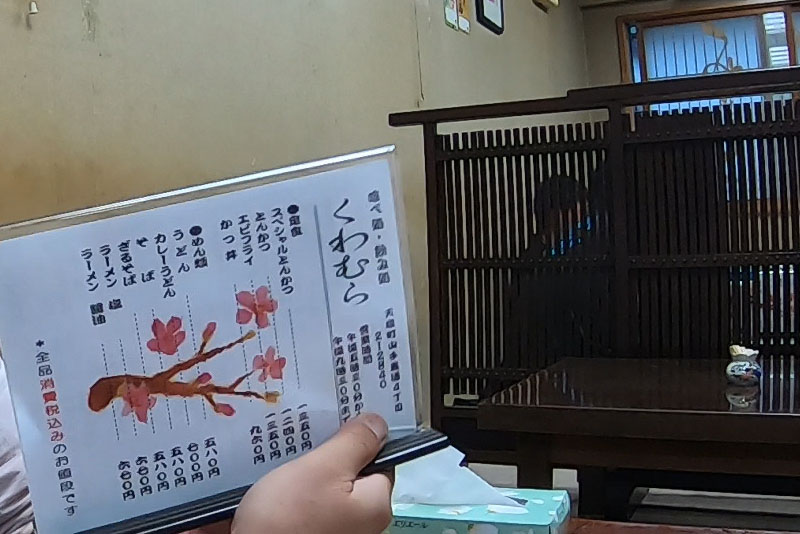 食べ処・飲み処
くわむら
天塩町山手裏通4丁目
212840
営業時間
午後5時30分から
午後九時30分まで
●定食
スペシャルとんかつ 一三五〇円
とんかつ 一二四〇円
エビフライ 一三五〇円
かつ丼 九六〇円
●めん類
うどん 五八〇円
カレーうどん 六〇〇円
そば 五八〇円
ざるそば 五八〇円
ラーメン 塩 六六〇円
ラーメン 醤油 六六〇円
*全品消費税込みのお値段です